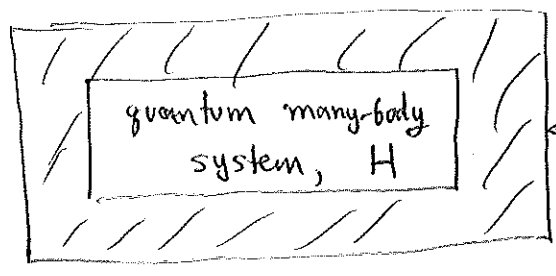 quantum many-body
system, H